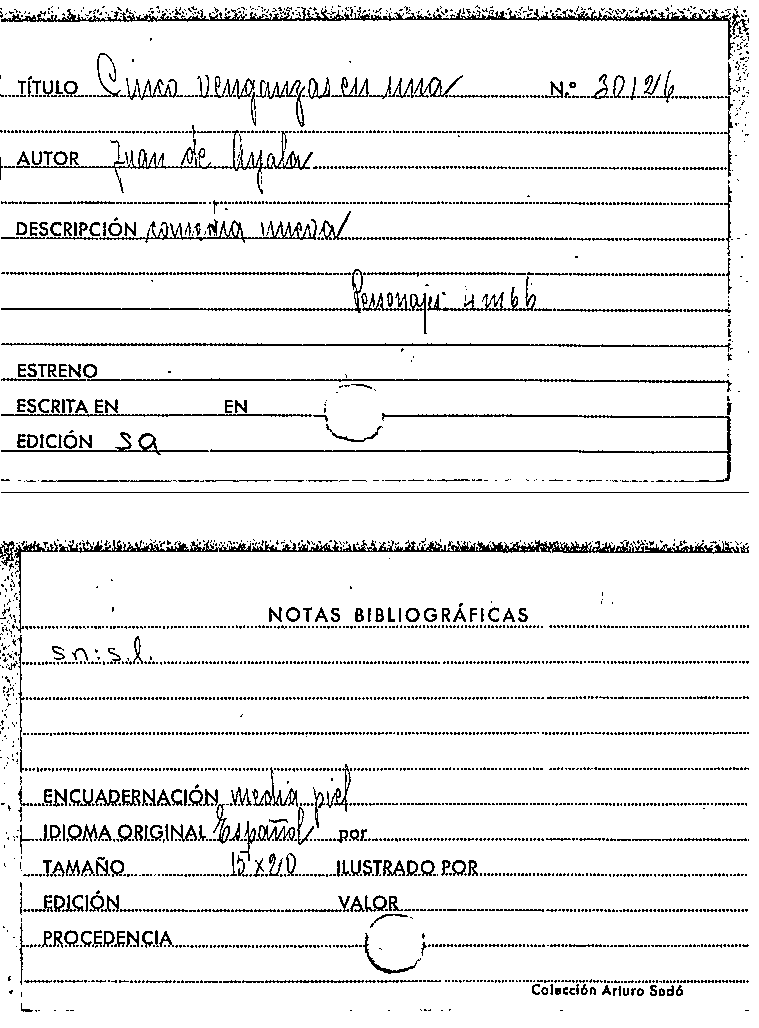 TÍTULO Cinco venganzas en una N.º 30126
AUTOR Juan de Ayala
DESCRIPCIÓN comedia nueva
Personajes: 4 m 6 h
ESTRENO
ESCRITA EN EN
EDICIÓN sa
NOTAS BIBLIOGRÁFICAS
sn: s.l.
ENCUADERNACIÓN media piel
IDIOMA ORIGINAL Español por
TAMAÑO 15 x 20 ILUSTRADO POR
EDICIÓN VALOR
PROCEDENCIA
Colección Arturo Sedó